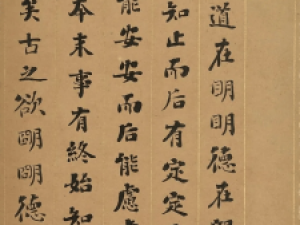 道在明明德在親
知止而后有定定
能安安而后能慮
本末事有終始知
矣古之欲明明德